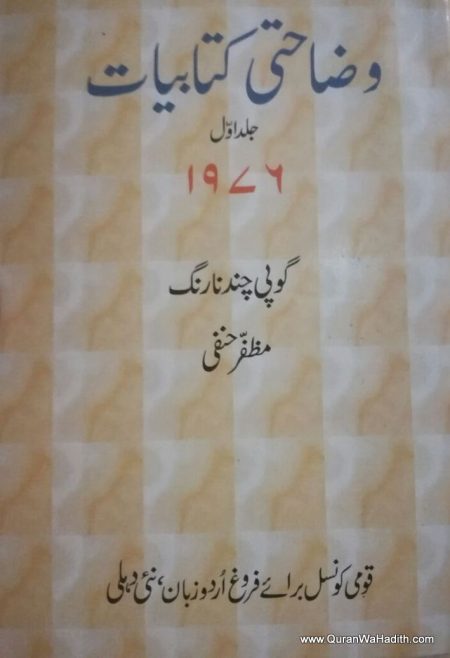 وضاحتی کتابیات
جلد اوّل
۱۹۷۶
گوپی چند نارنگ
مظفّر حنفی
قومی کونسل برائے فروغ اُردو زبان، نئی دہلی
www.QuranWaHadith.com